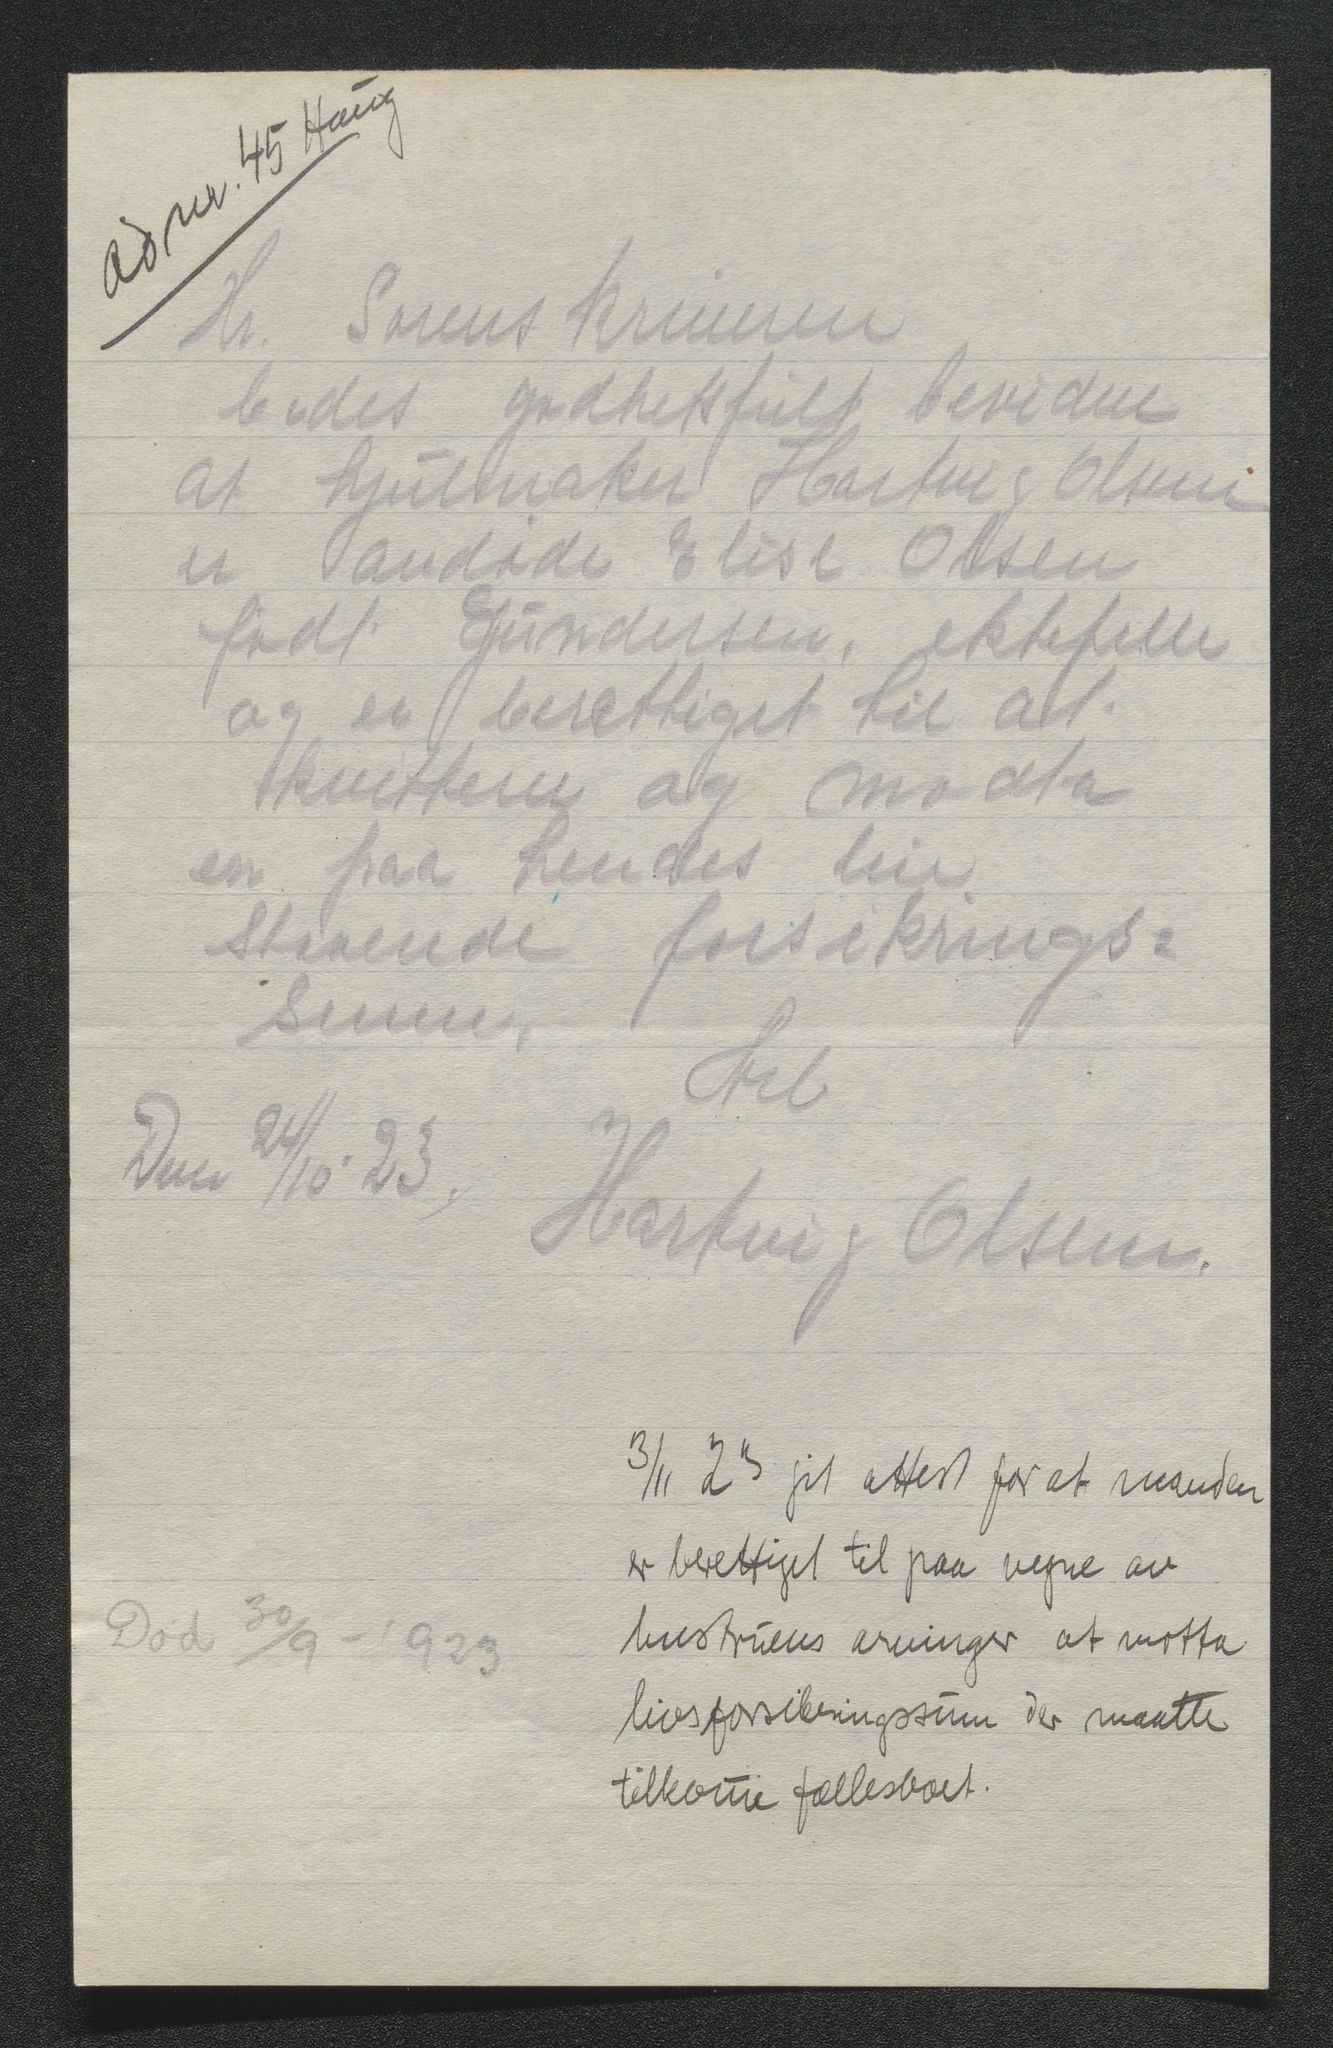 ad nr. 45 Haug
Hr. Sorenskriveren
bedes godhetsfult bevidne
at hjulmaker Hartvig Olsen
er avdøde Elise Olsen
født Gundersen, ektefelle
og er berettiget til at
kvittere og modta
en paa hendes liv
støende forsikrings=
Sum.
Arb
Den 24/10 23.
Hartvig Olsen.
3/11 23 git attest for at manden
er berettiget til paa vegne av
hustruens arvinger at motta
livsforsikringssum der maatte
tilkomme fællesboet.
Død 30/9 - 1923